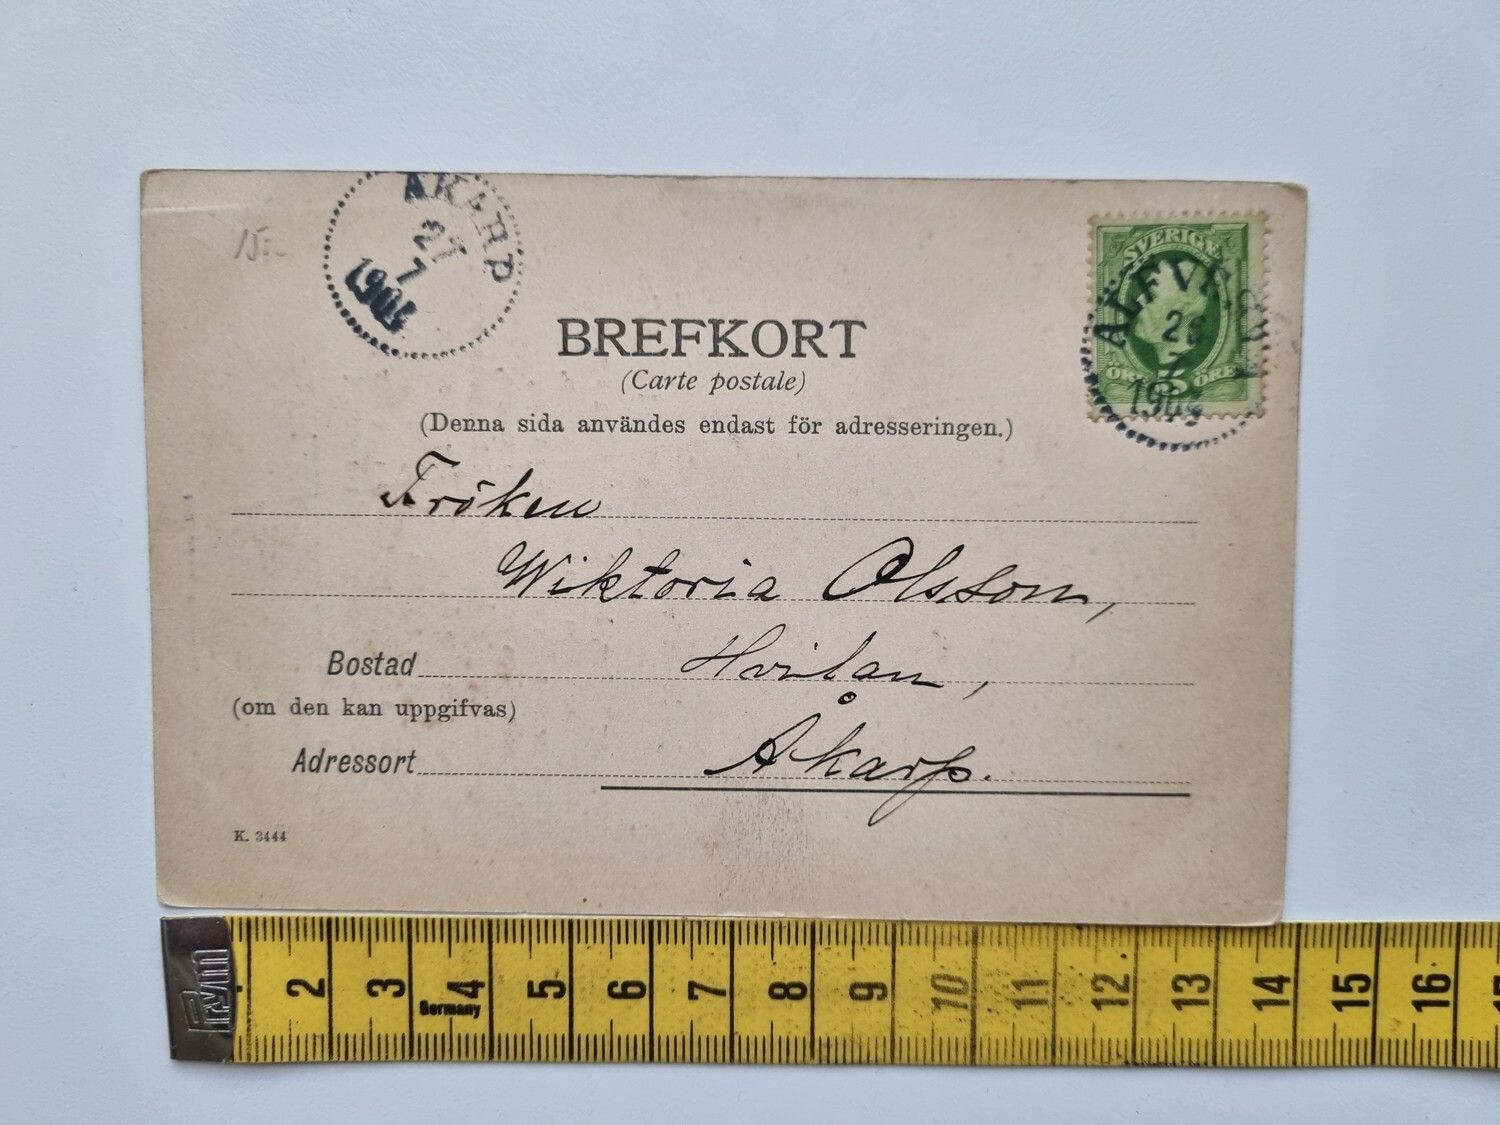 ÅKARP
27
7
1905
15:-
SVERIGE
5
ÖRE ÖRE
1903
BREFKORT
(Carte postale)
(Denna sida användes endast för adresseringen.)
Fröken
Wiktoria Olsson,
Bostad Hvilan,
(om den kan uppgifvas)
Adressort Åkarp.
K. 3444
Prym
2 3 4 5 6 7 8 9 10 11 12 13 14 15 16
Germany